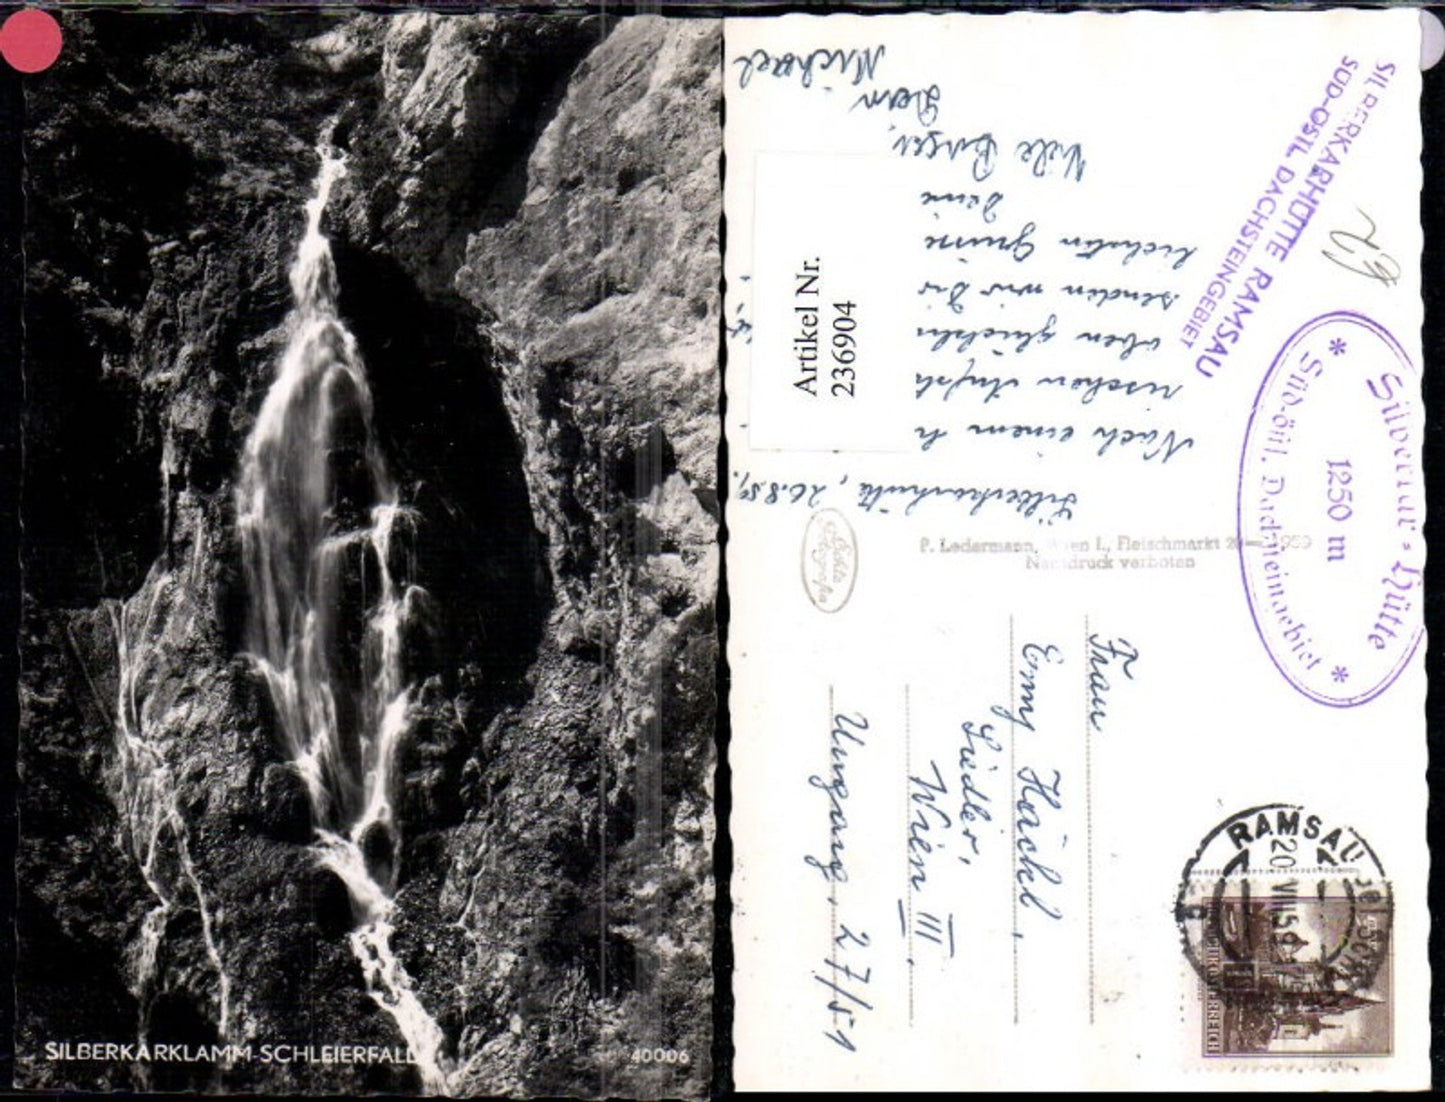 SILBERKARKLAMM-SCHLEIERFALL
40006
Silberkarhütte, 20.8.59.
Nach einem
senden wir Dir
Grüsse
Deine
Viele
Dein
Michael
Artikel Nr.
236904
SILBERKARHÜTTE RAMSAU
SÜD-ÖSTL. DACHSTEINGEBIET
Silberkar-Hütte
1250 m
Süd-östl. Dachsteingebiet
P. Ledermann, Wien I., Fleischmarkt 20 1959
Nachdruck verboten
Echte
Frau
Emy Hächl,
Siedler,
Wien III,
Ungarg. 27/59
RAMSAU
20 VIII 59
REPUBLIK ÖSTERREICH